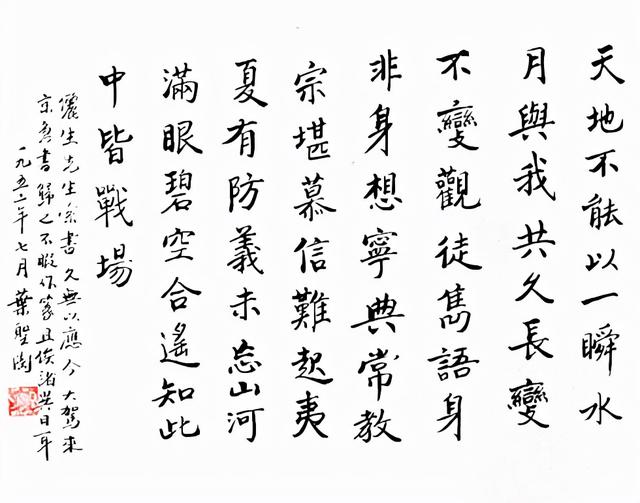 天地不能以一瞬水
月與我共久長變
不變觀徒雋語身
非身想寧典常教
宗堪慕信難起夷
夏有防義未忘山河
滿眼碧空合遙知此
中皆戰場
儷生先生命書久無以應今大駕來
京勇書歸之不暇作篆且俟諸異日耳
一九五二年七月葉聖陶